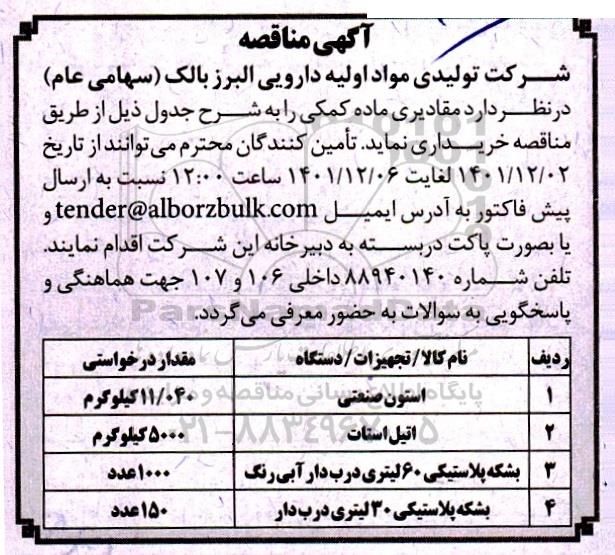 آگهی مناقصه
شرکت تولیدی مواد اولیه دارویی البرز بالک (سهامی عام)
در نظر دارد مقادیری ماده کمکی را به شرح جدول ذیل از طریق
مناقصه خریداری نماید. تأمین کنندگان محترم می‌توانند از تاریخ
۱۴۰۱/۱۲/۰۲ لغایت ۱۴۰۱/۱۲/۰۶ ساعت ۱۲:۰۰ نسبت به ارسال
پیش فاکتور به آدرس ایمیل tender@alborzbulk.com و
یا بصورت پاکت دربسته به دبیرخانه این شرکت اقدام نمایند.
تلفن شماره ۸۸۹۴۰۱۴۰ داخلی ۱۰۶ و ۱۰۷ جهت هماهنگی و
پاسخگویی به سوالات به حضور معرفی می‌گردد.
ردیف نام کالا/تجهیزات/دستگاه مقدار درخواستی
۱ استون صنعتی ۱۱/۰۴۰ کیلوگرم
۲ اتیل استات ۵۰۰۰ کیلوگرم
۳ بشکه پلاستیکی ۶۰ لیتری درب دار آبی رنگ ۱۰۰۰ عدد
۴ بشکه پلاستیکی ۳۰ لیتری درب دار ۱۵۰ عدد